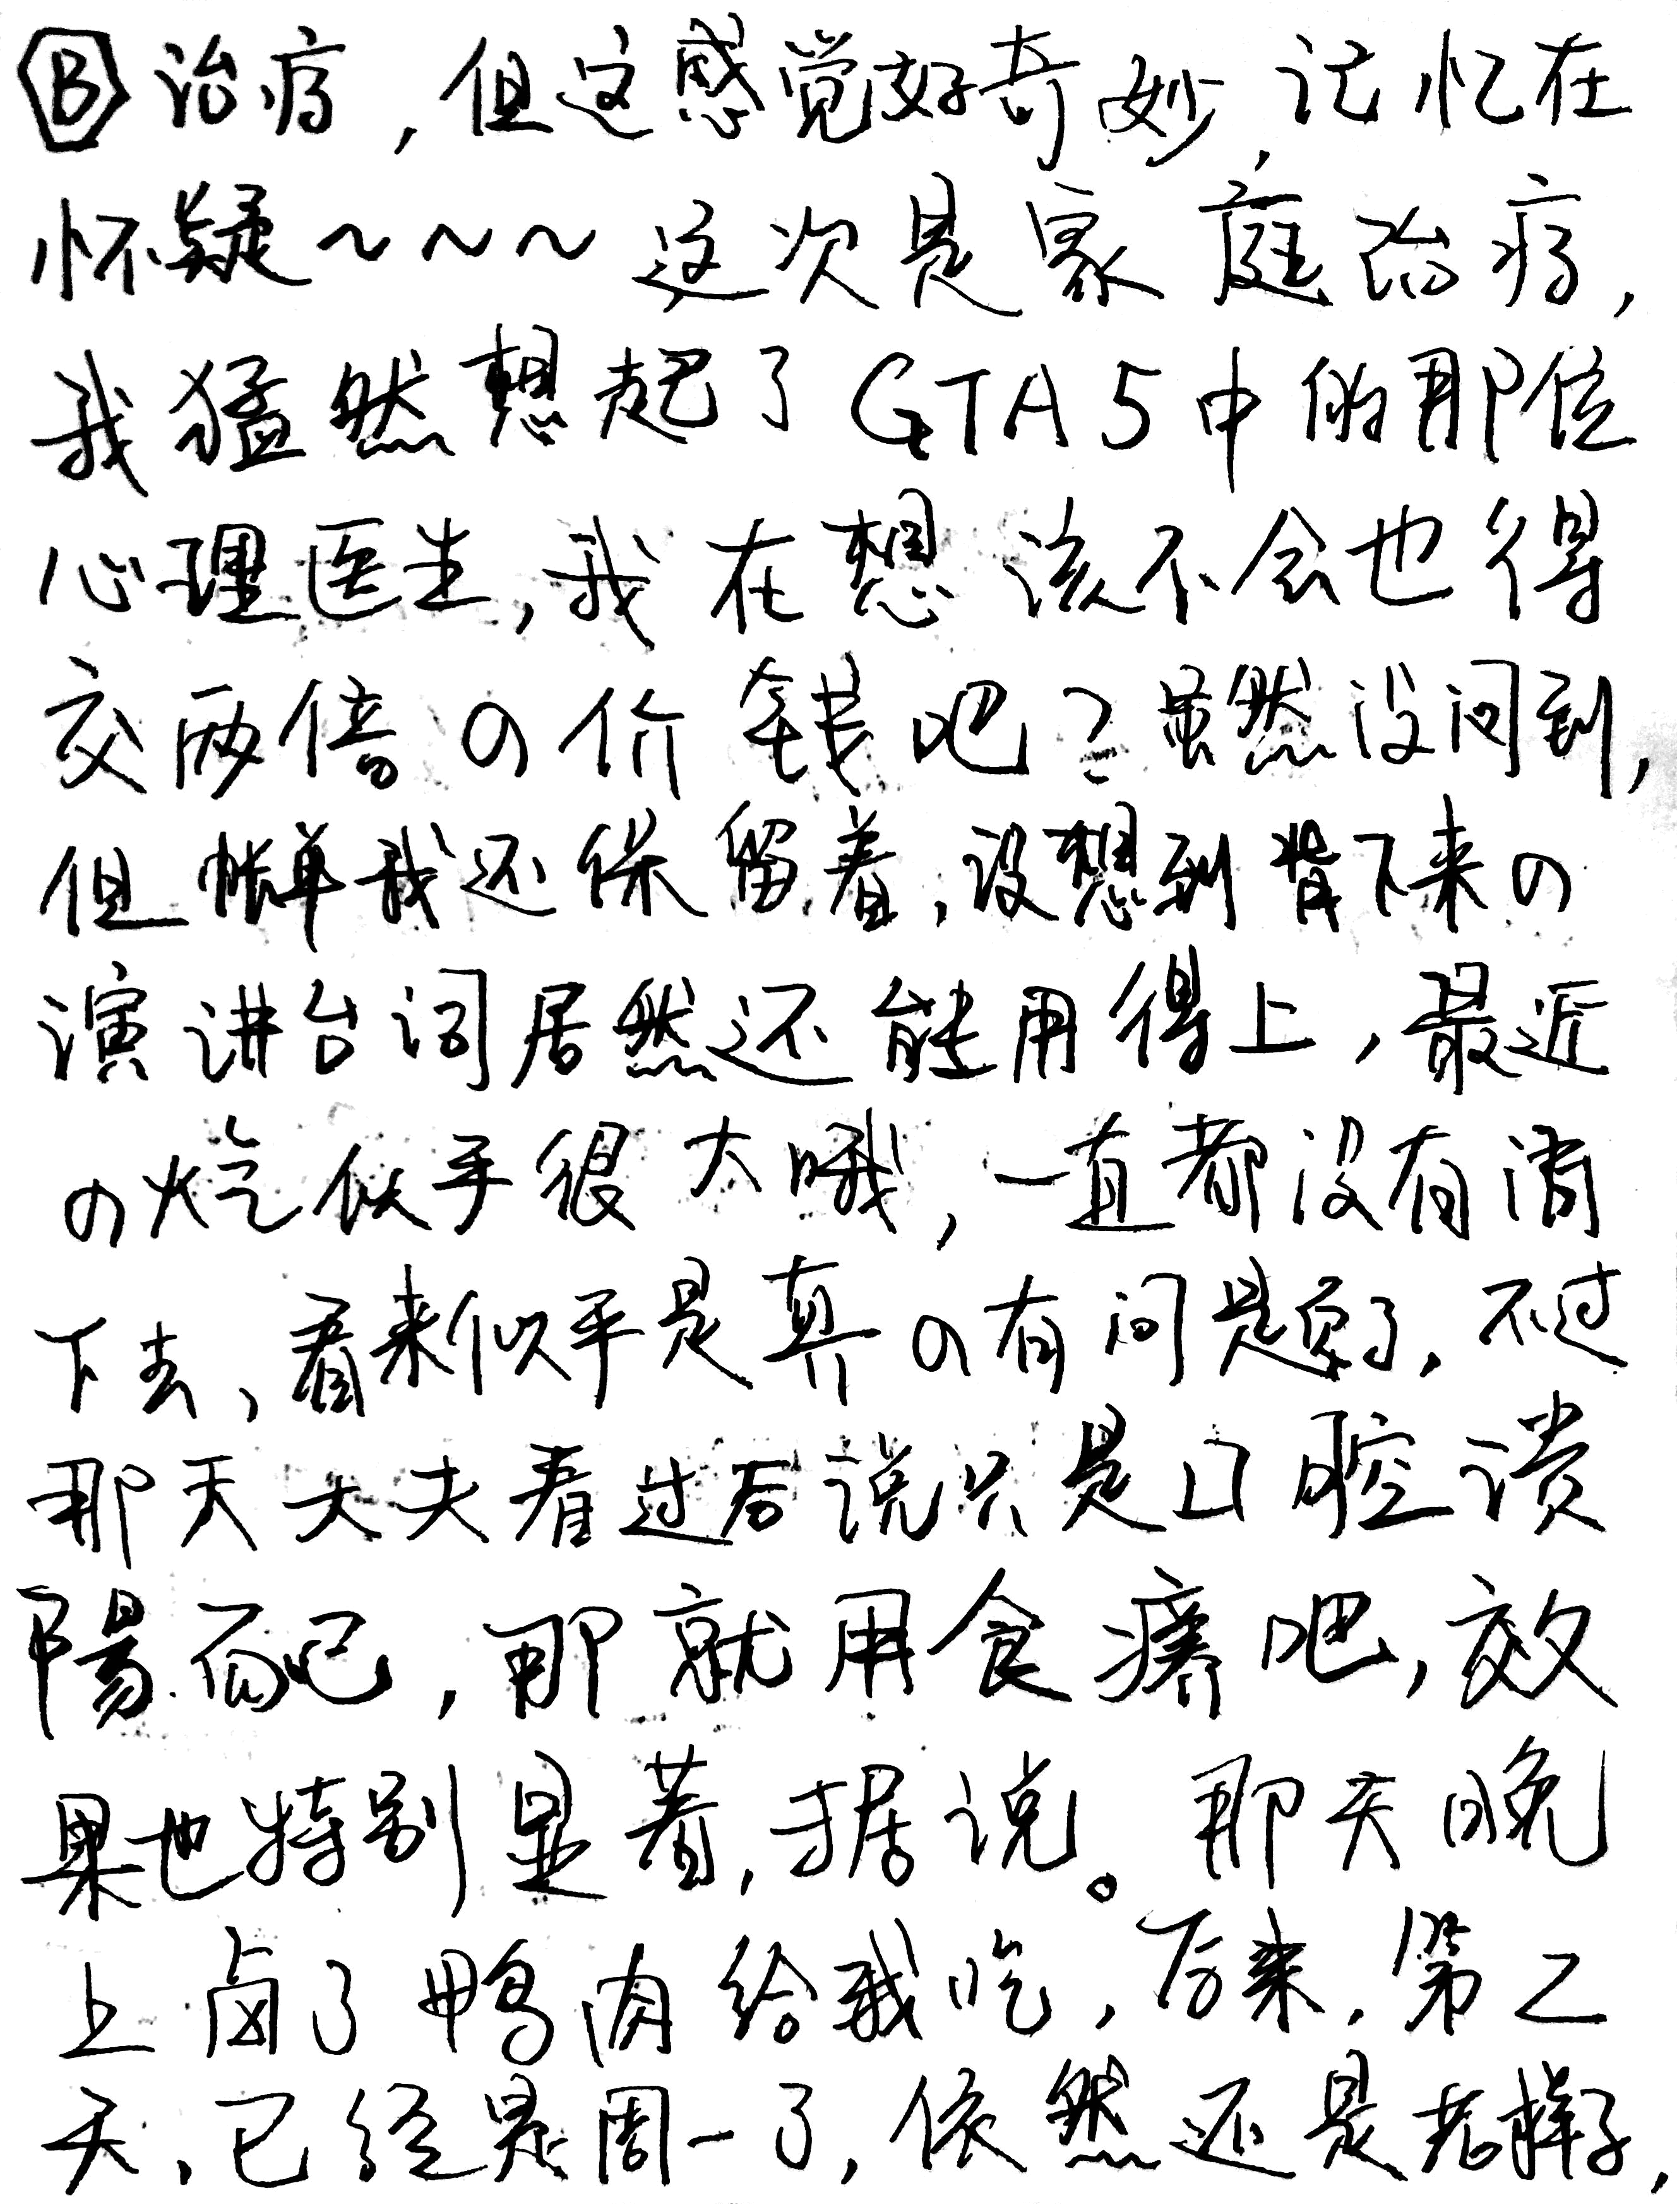 Ⓑ 治疗，但这感觉好奇妙，记忆在
怀疑～～～这次是家庭治疗，
我猛然想起了GTA5中的那位
心理医生，我在想该不会也得
交两倍の价钱吧？虽然没问到，
但帐单我还保留着，没想到背下来の
演讲台词居然还能用得上，最近
の火气似乎很大哦，一直都没有消
下去，看来似乎是真の有问题了，不过
那天大夫看过后说只是口腔溃
陽而已，那就用食療吧，效
果也特别显著，据说。那天晚
上卤了鸭肉给我吃，后来，第乙
天，已经是周一了，依然还是老样子，